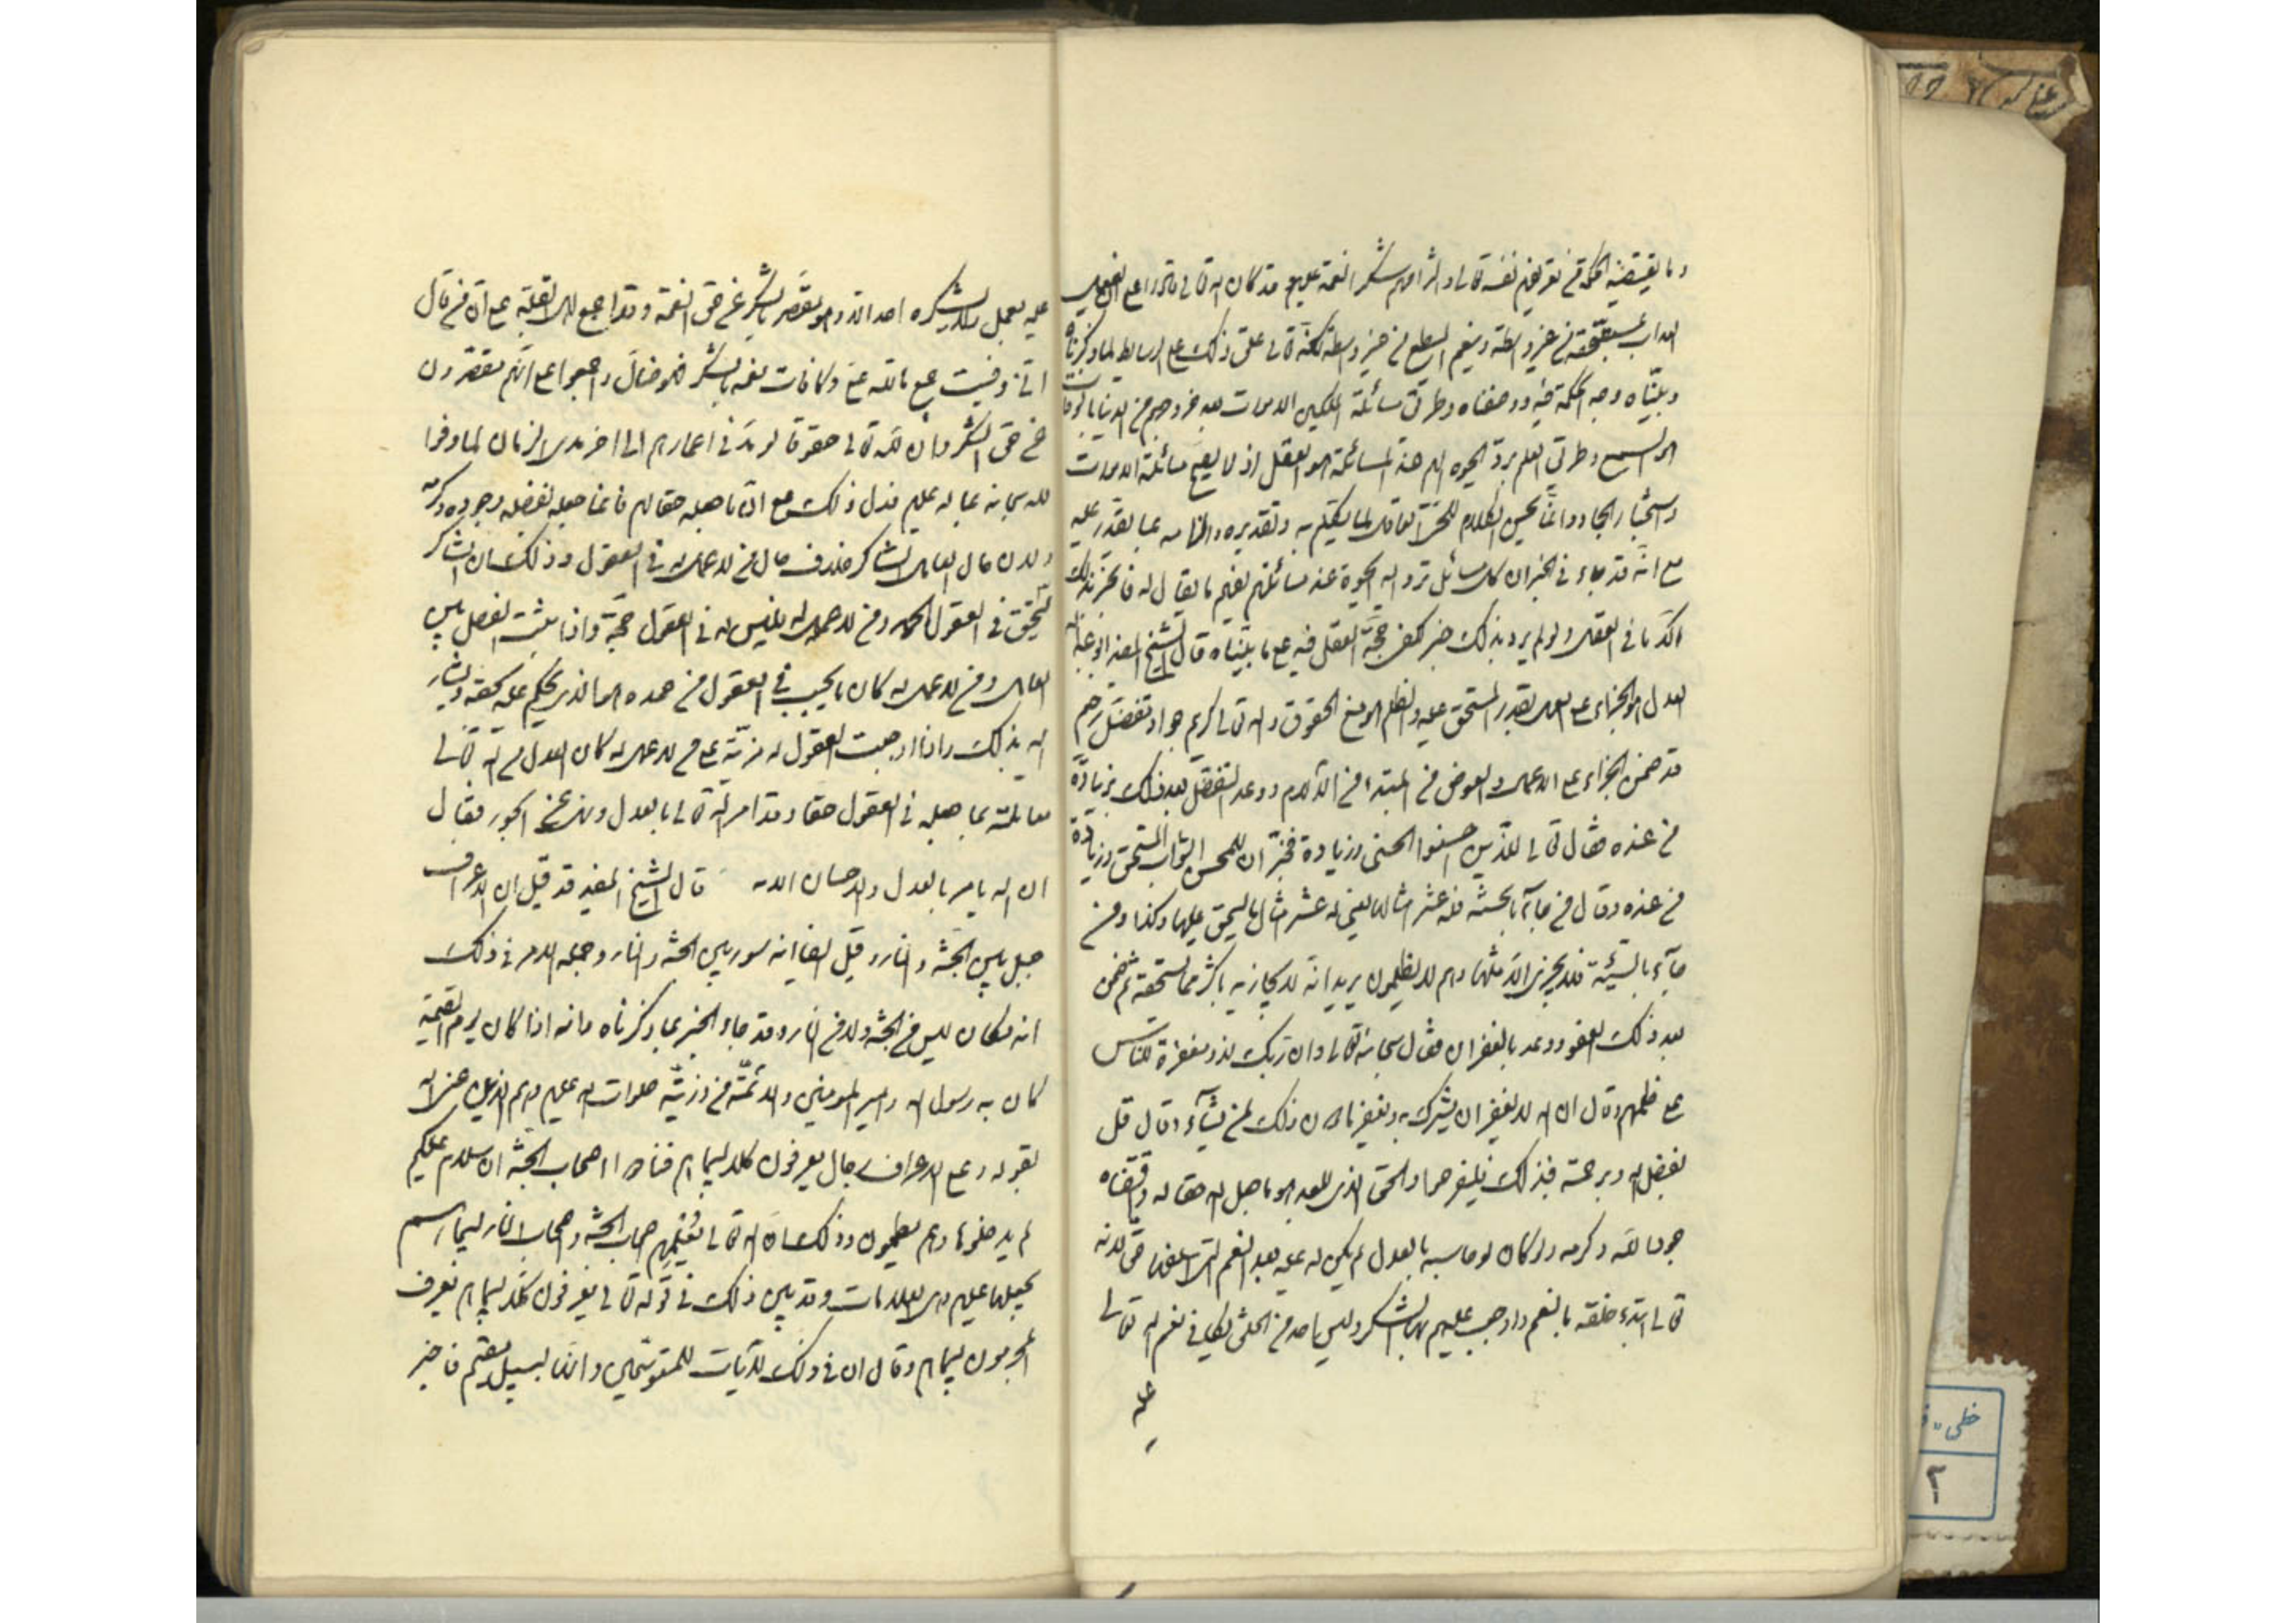 وما يقتضيه الحكمة في تعريفهم نفسه تعالى والزامهم شكر النعمة عليهم وقد كان الله تعالى قادرا على ان يفعل
العذاب بمستحقه من غير واسطة وينعم المطيع من غير واسطة لكنه تعالى علق ذلك على الوسائط لما ذكرناه
وبيناه وجه الحكمة فيه ووصفناه وطريق مسائلة الملكين الاموات بعد خروجهم من الدنيا بالوفات
هو السمع وطريق العلم برد الحيوة اليهم عند المسائلة هو العقل اذ لا يصح مسائلة الاموات
واستخبار الجماد وانما يحسن الكلام للحي العاقل لما يكلم به وتقديره والزامه بما يقدر عليه
مع انه قد جاء في الخبر ان كل مسائل ترد اليه الحيوة عند مسائلتهم ليفهم ما يقال له فالخبر بذلك
اكد ما في العقل ولو لم يرد بذلك خبر لكفى حجة العقل فيه على ما بيناه قال الشيخ المفيد ابو عبد الله
العدل هو الجزاء على العمل بقدر المستحق عليه والظلم هو منع الحقوق والله تعالى كريم جواد متفضل رحيم
قد ضمن الجزاء على الاعمال والعوض من المبتدا من الآلام ووعد التفضل بعد ذلك بزيادة
من عنده فقال تعالى للذين احسنوا الحسنى وزيادة فخبر ان للمحسن الثواب المستحق وزيادة
من عنده وقال من جآء بالحسنة فله عشر امثالها يعني له عشر امثال ما يستحق عليها وكذا ومن
جآء بالسيئة فلا يجزى الا مثلها وهم لا يظلمون يريد انه لا يجازيه باكثر مما يستحقه ثم ضمن
بعد ذلك العفو ووعد بالغفران فقال سبحانه تعالى وان ربك لذو مغفرة للناس
على ظلمهم وقال ان الله لا يغفر ان يشرك به ويغفر ما دون ذلك لمن يشآء وقال قل
بفضل الله وبرحمته فبذلك فليفرحوا والحق الذي للعبد هو ما جعل الله حقا له واقتضاه
جود الله وكرمه ولو كان لو حاسبه بالعدل لم يكن له عليه بعد النعم التي اسلفها حق لانه
تعالى ابتدء خلقه بالنعم واوجب عليهم بها الشكر وليس احد من الخلق يكافي نعم الله تعالى
عليه
عليه بعمل ولا يشكره احد الا وهو مقصر بالشكر عن حق النعمة وقد اجمع اهل القبلة على ان من قال
اني وفيت جميع ما لله علي وكافات نعمه بالشكر فهو ضال واجمعوا على انهم مقصرون
عن حق الشكر وان لله تعالى حقوقا لو مد في اعمارهم الى اخر مدى الزمان لما وفوا
لله سبحانه بما له عليهم فدل ذلك على ان ما جعله حقا لهم فانما جعله بفضله وجوده وكرمه
ولان حال العامل الشاكر خلاف حال من لا عمل له في العقول وذلك ان الشاكر
يستحق في العقول الحمد ومن لا عمل له فليس له في العقول حجة واذا ثبت الفصل بين
العامل ومن لا عمل له كان ما يجب في العقول من حمده هو الذي يحكم عليه بحقه ويشار
اليه بذلك واذا اوجبت العقول له مزية على من لا عمل له كان العدل من الله تعالى
معاملته بما جعله في العقول حقا وقد امر الله تعالى بالعدل ونهى عن الجور فقال
ان الله يامر بالعدل والاحسان الاية قال الشيخ المفيد قد قيل ان الاعراف
جبل بين الجنة والنار وقيل ايضا انه سور بين الجنة والنار وجملة الامر في ذلك
انه مكان ليس من الجنة ولا من النار وقد جاء الخبر بما ذكرناه وانه اذا كان يوم القيمة
كان به رسول الله وامير المومنين والائمة من ذريته صلوات الله عليهم وهم الذين عنى الله
بقوله وعلى الاعراف رجال يعرفون كلا بسيماهم فنادوا اصحاب الجنة ان سلام عليكم
لم يدخلوها وهم يطمعون وذلك ان الله تعالى يعلمهم اصحاب الجنة واصحاب النار بسيماء
يجعلها عليهم وهي العلامات وقد بين ذلك في قوله تعالى يعرفون كلا بسيماهم يعرف
المجرمون بسيماهم وقال ان في ذلك لآيات للمتوسمين وانها لبسبيل مقيم فاخبر